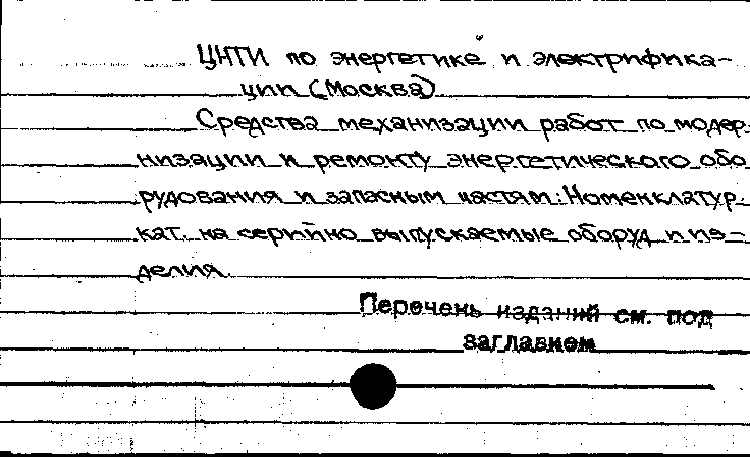 ЦНТИ по энергетике и электрифика-
ции (Москва)
Средства механизации работ по модер-
низации и ремонту энергетического обо
рудования и запасным частям: Номенклатур.
кат. на серийно выпускаемые оборуд. и из-
делия.
Перечень изданий см. под
заглавием